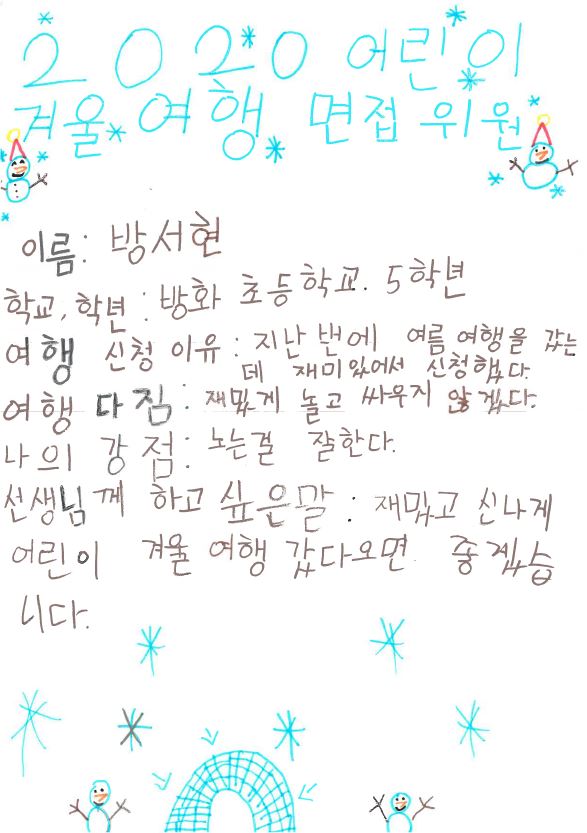 2020 어린이
겨울 여행 면접 위원
이름: 방서현
학교, 학년: 방화 초등학교. 5학년
여행 신청 이유: 지난 번에 여름 여행을 갔는
데 재미있어서 신청했다.
여행 다짐: 재밌게 놀고 싸우지 않겠다.
나의 강점: 노는걸 잘한다.
선생님께 하고 싶은말: 재밌고 신나게
어린이 겨울 여행 갔다오면 좋겠습
니다.